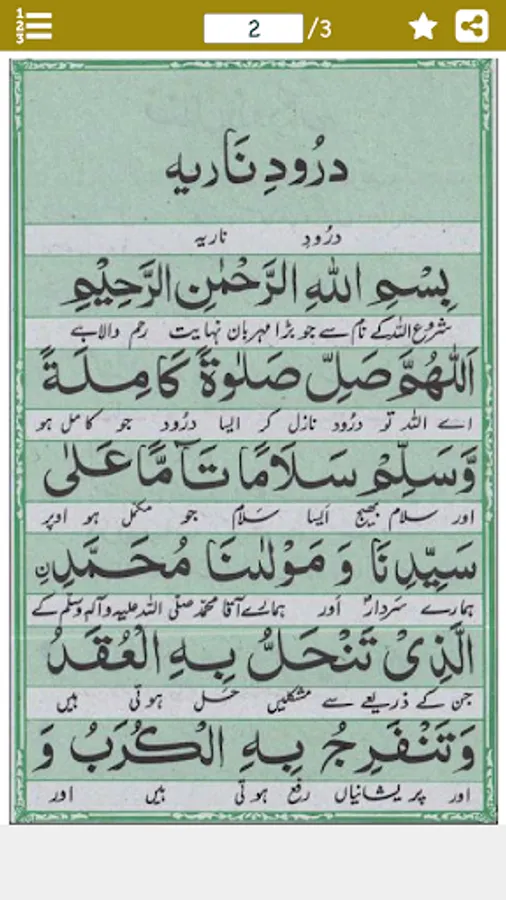 1
2
3
2
/3
درُودِ نَاریہ
درُودِ ناریہ
بِسْمِ اللهِ الرَّحْمٰنِ الرَّحِيْمِ
شروع اللہ کے نام سے جو بڑا مہربان نہایت رحم والا ہے
اَللّٰهُمَّ صَلِّ صَلٰوةً كَامِلَةً
اے اللہ تو درُود نازل کر ایسا درُود جو کامل ہو
وَّسَلِّمْ سَلَامًا تَآمًّا عَلٰى
اور سلام بھیج ایسا سلام جو مکمل ہو اوپر
سَيِّدِنَا وَ مَوْلٰىنَا مُحَمَّدِنِ
ہمارے سردار اور ہمارے آقا محمد صلّی اللہ علیہ وآلہ وسلّم کے
الَّذِىْ تَنْحَلُّ بِهِ الْعُقَدُ
جن کے ذریعے سے مشکلیں حل ہوتی ہیں
وَتَنْفَرِجُ بِهِ الْكُرَبُ وَ
اور پریشانیاں رفع ہوتی ہیں اور